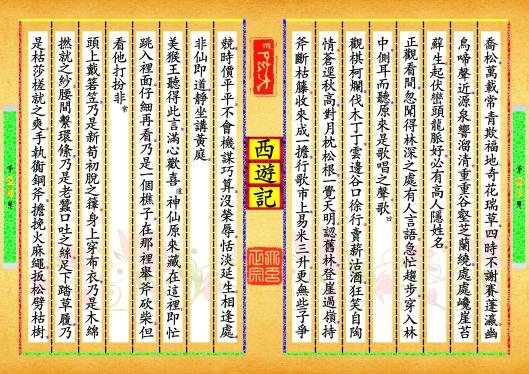 喬松萬載常青欺福地奇花瑞草四時不謝賽蓬瀛幽
鳥啼聲近源泉響溜清重重谷壑芝蘭繞處處巉崖苔
蘚生起伏巒頭龍脈好必有高人隱姓名
正觀看間忽聞得林深之處有人言語急忙趨步穿入林
中側耳而聽原來是歌唱之聲歌曰
觀棋柯爛伐木丁丁雲邊谷口徐行賣薪沽酒狂笑自陶
情蒼逕秋高對月枕松根一覺天明認舊林登崖過嶺持
斧斷枯藤收來成一擔行歌市上易米三升更無些子爭
西遊記
競時價平平不會機謀巧算沒榮辱恬淡延生相逢處
非仙即道靜坐講黃庭
美猴王聽得此言滿心歡喜道神仙原來藏在這裡即忙
跳入裡面仔細再看乃是一個樵子在那裡舉斧砍柴但
看他打扮非常
頭上戴箬笠乃是新筍初脫之籜身上穿布衣乃是木綿
撚就之紗腰間繫環絛乃是老蠶口吐之絲足下踏草履乃
是枯莎槎就之爽手執衠鋼斧擔挽火麻繩扳松劈枯樹